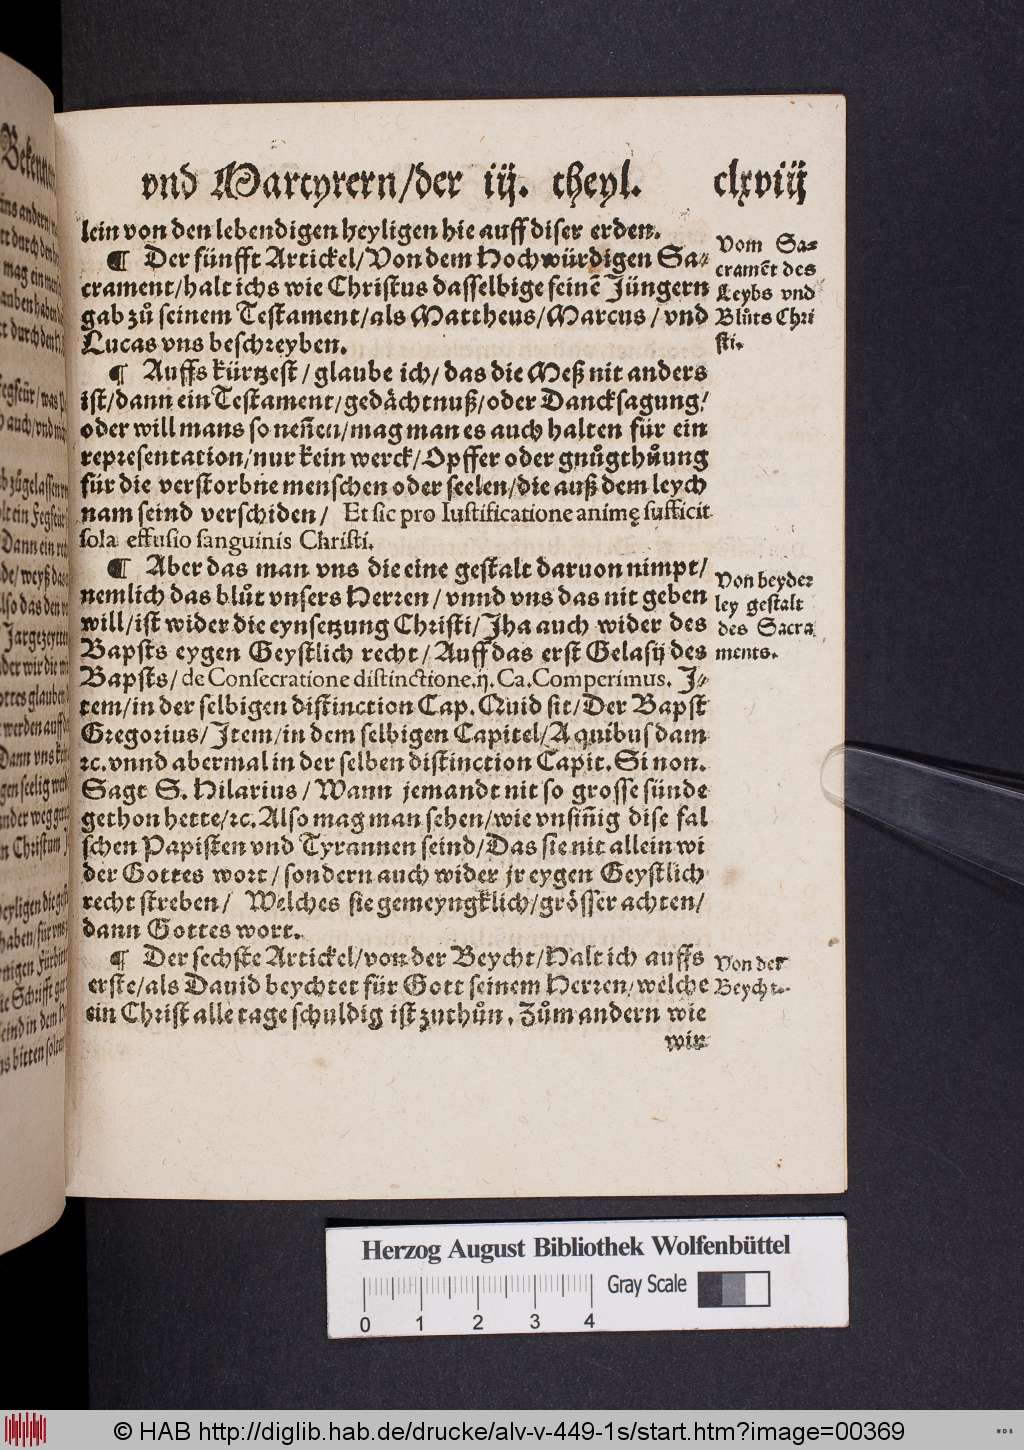 vnd Martyrern/der iij. theyl. clxviij
lein von den lebendigen heyligen hie auff diser erden.
¶ Der fünfft Artickel/Von dem Hochwürdigen Sa-
crament/halt ichs wie Christus dasselbige seinē Jüngern
gab zů seinem Testament/als Mattheus/Marcus/vnd
Lucas vns beschreyben.
Vom Sa-
cramēt des
Leybs vnd
Blůts Chri
sti.
¶ Auffs kürtzest/glaube ich/das die Meß nit anders
ist/dann ein Testament/gedåchtnuß/oder Dancksagung/
oder will mans so neñen/mag man es auch halten für ein
representation/nur kein werck/Opffer oder gnůgthůung
für die verstorbne menschen oder seelen/die auß dem leych
nam seind verschiden/ Et sic pro Iustificatione animę sufficit
sola effusio sanguinis Christi.
¶ Aber das man vns die eine gestalt daruon nimpt/
nemlich das blůt vnsers Herren/vnnd vns das nit geben
will/ist wider die eynsetzung Christi/Jha auch wider des
Bapsts eygen Geystlich recht/Auff das erst Gelasij des
Bapsts/de Consecratione distinctione.ij.Ca.Comperimus. J-
tem/in der selbigen distinction Cap. Quid sit/Der Bapst
Gregorius/Jtem/in dem selbigen Capitel/A quibusdam
ꝛc.vnnd abermal in der selben distinction Capit. Si non.
Sagt S. Hilarius/Wann jemandt nit so grosse sünde
gethon hette/ꝛc.Also mag man sehen/wie vnsiñig dise fal
schen Papisten vnd Tyrannen seind/Das sie nit allein wi
der Gottes wort/sondern auch wider jr eygen Geystlich
recht streben/ Welches sie gemeyngklich/grösser achten/
dann Gottes wort.
Von beyder
ley gestalt
des Sacra
ments.
¶ Der sechste Artickel/von der Beycht/Halt ich auffs
erste/als Dauid beychtet für Gott seinem Herren/welche
ein Christ alle tage schuldig ist zuthůn. Zům andern wie
wir
Von der
Beycht.
Herzog August Bibliothek Wolfenbüttel
Gray Scale
0 1 2 3 4
© HAB http://diglib.hab.de/drucke/alv-v-449-1s/start.htm?image=00369